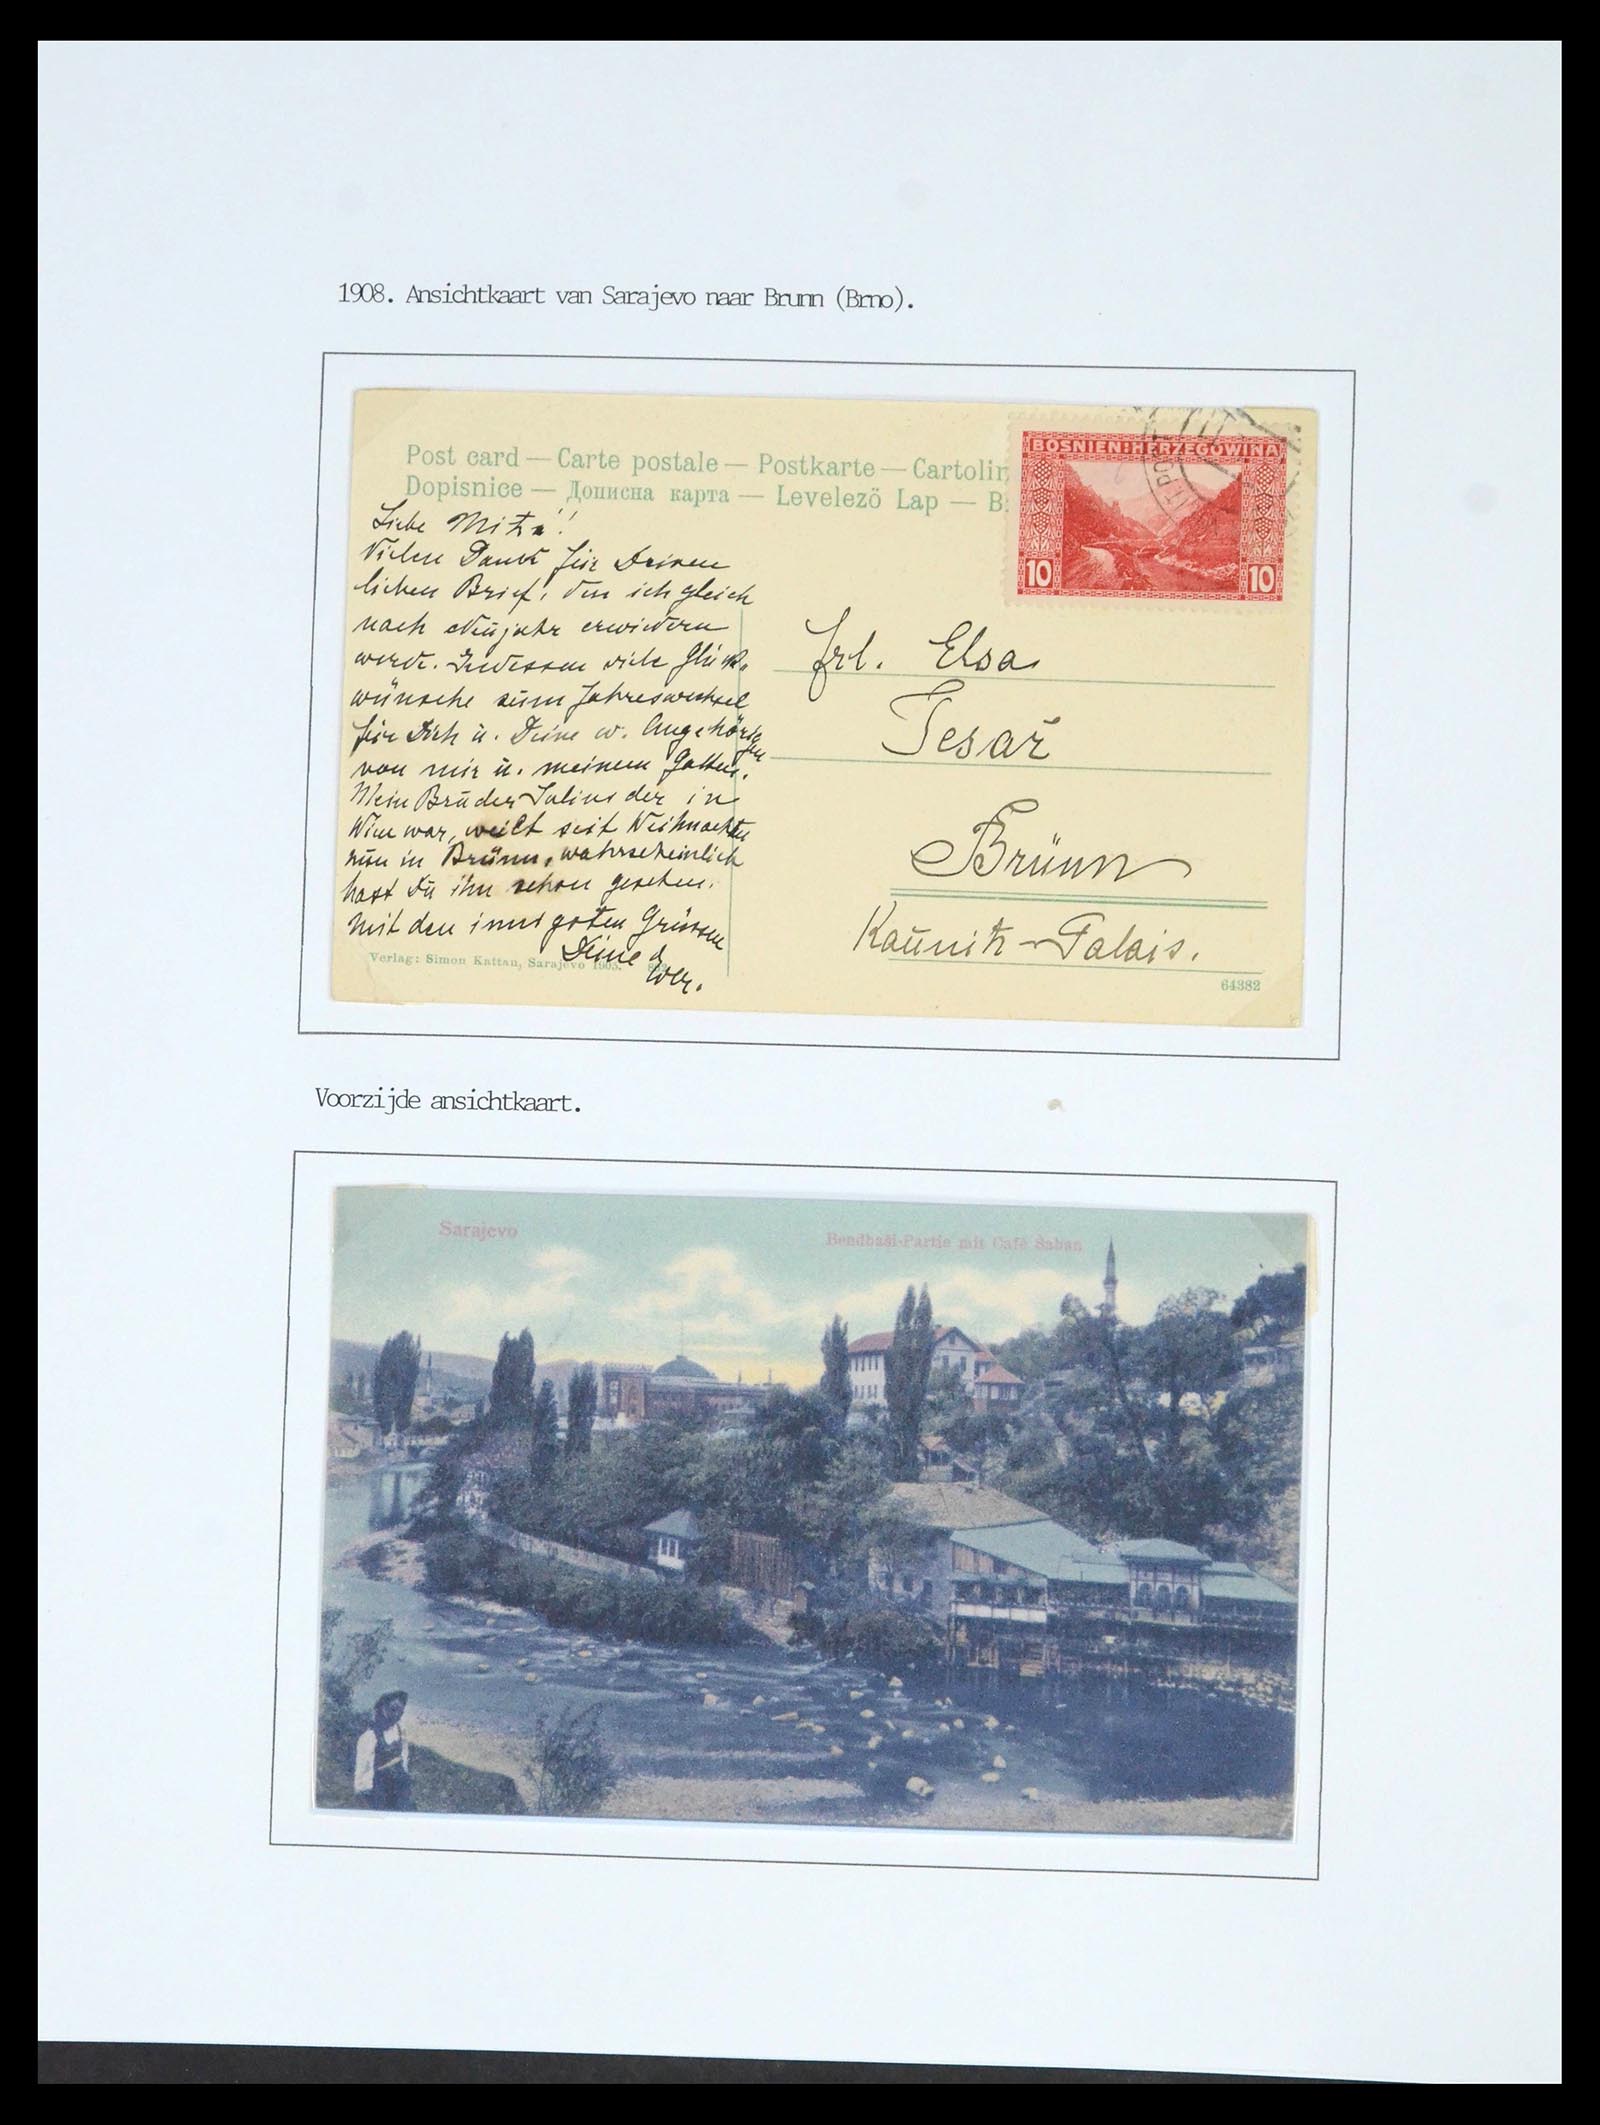 1908. Ansichtkaart van Sarajevo naar Brunn (Brno).
Post card — Carte postale — Postkarte — Cartolin
Dopisnice — Дописна карта — Levelező Lap — B
BOSNIEN-HERZEGOWINA
10 10
Liebe
Vielen Dank für Deinen
lieben Brief, den ich gleich
nach Neujahr erwiedern
werde. Indessen viele Glück-
wünsche zum Jahreswechsel
für Dich u. Deine w. Angehörigen
von mir u. meinem Gatten.
Mein Bruder Julius der in
Wien war, weilt seit Weihnachten
nun in Brünn, wahrscheinlich
hast Du ihn schon gesehen.
Mit den innigsten Grüssen
Deine
Frl. Elsa
Tesař
Brünn
Kaunitz-Palais.
Verlag: Simon Kattan, Sarajevo 1905.
64382
Voorzijde ansichtkaart.
Sarajevo
Bendbaši-Partie mit Café Šaban